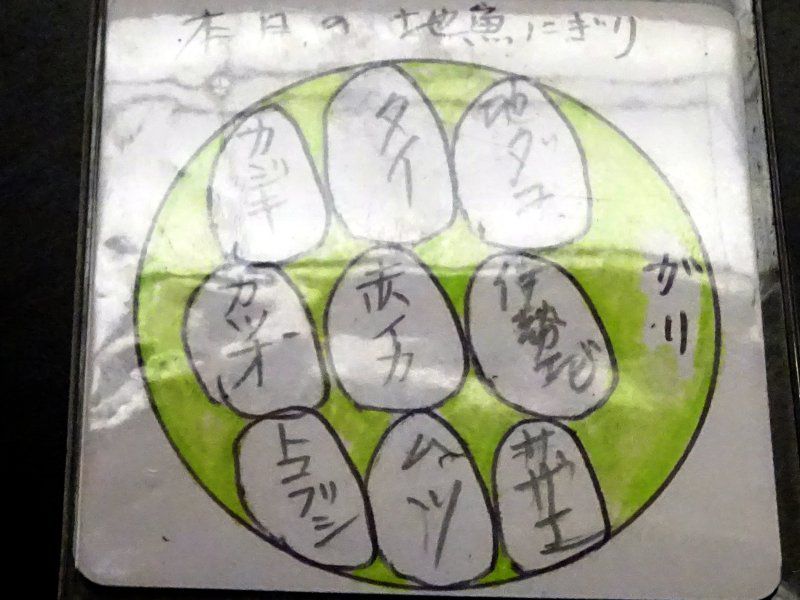 本日の地魚にぎり
カジキ
タイ
地ダコ
カツオ
赤イカ
伊勢エビ
がり
トコブシ
ムツ
サザエ